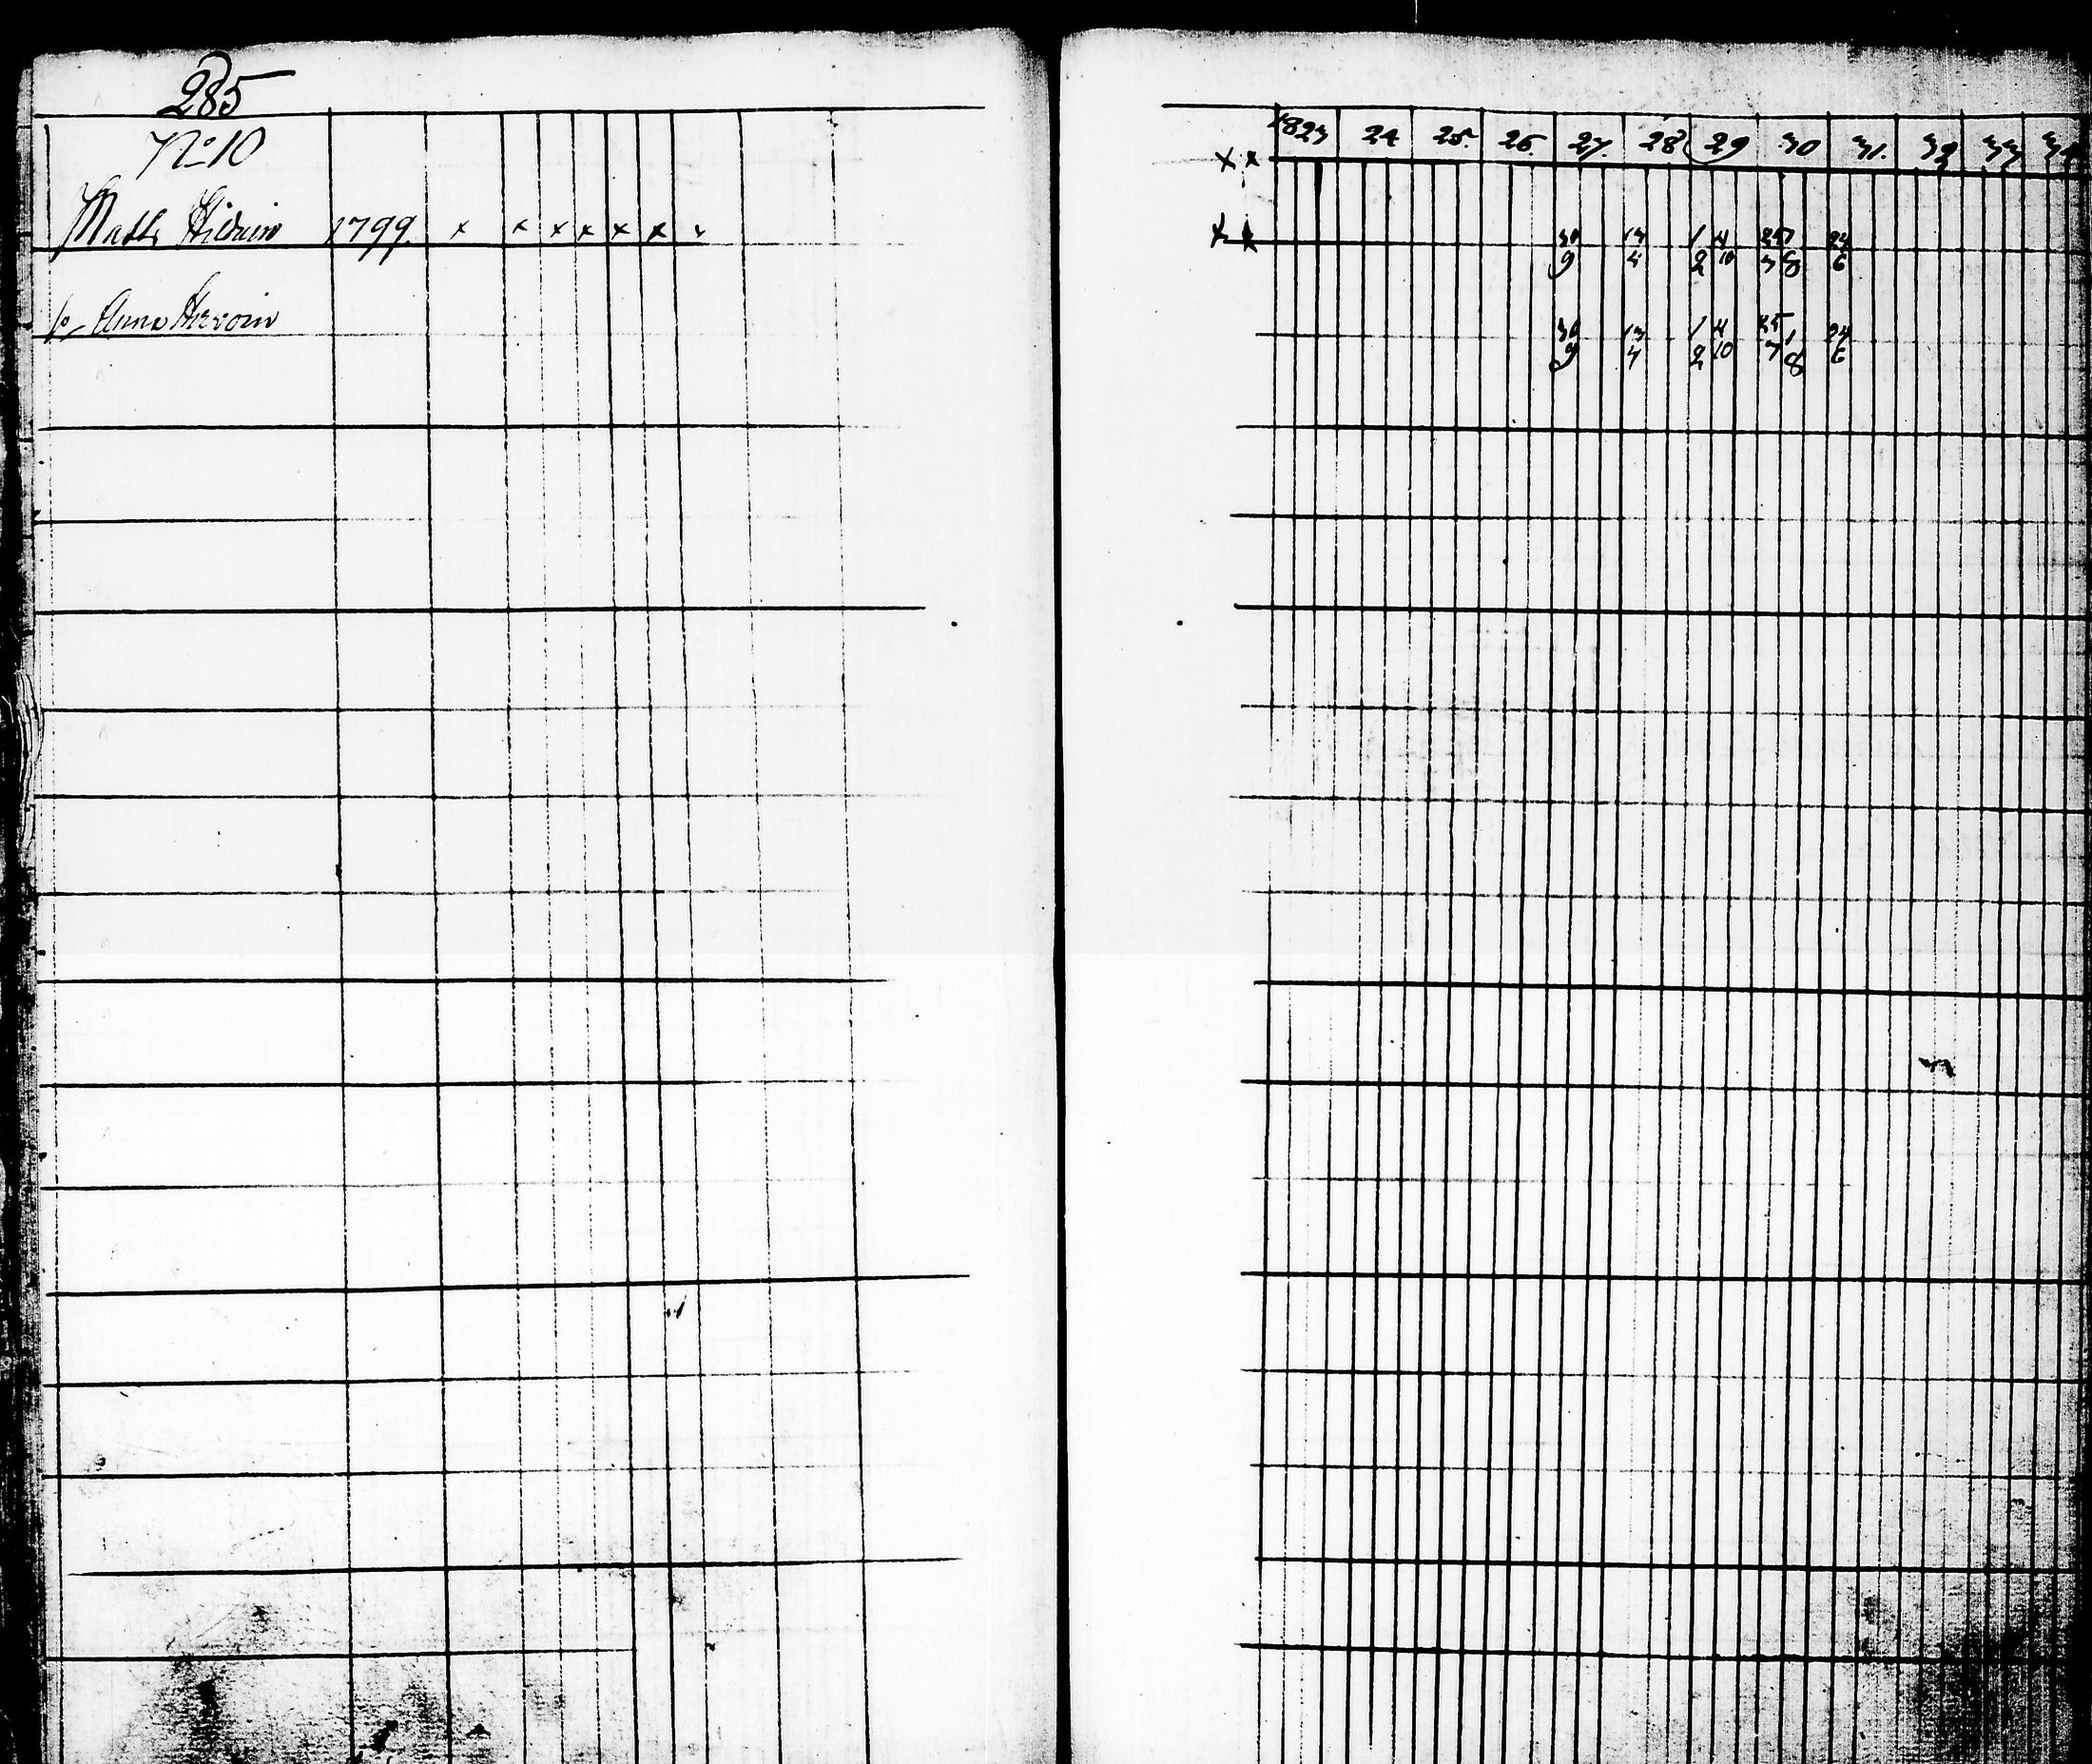 285
No 10
Matts 1799. x x x x x x x
Anna
1823 24 25. 26. 27. 28 29 30 31. 32 33 34
x x
x x 30/9 13/4 1/2 4/10 25/7 1/8 24/6
30/9 13/4 1/2 4/10 25/7 1/8 24/6